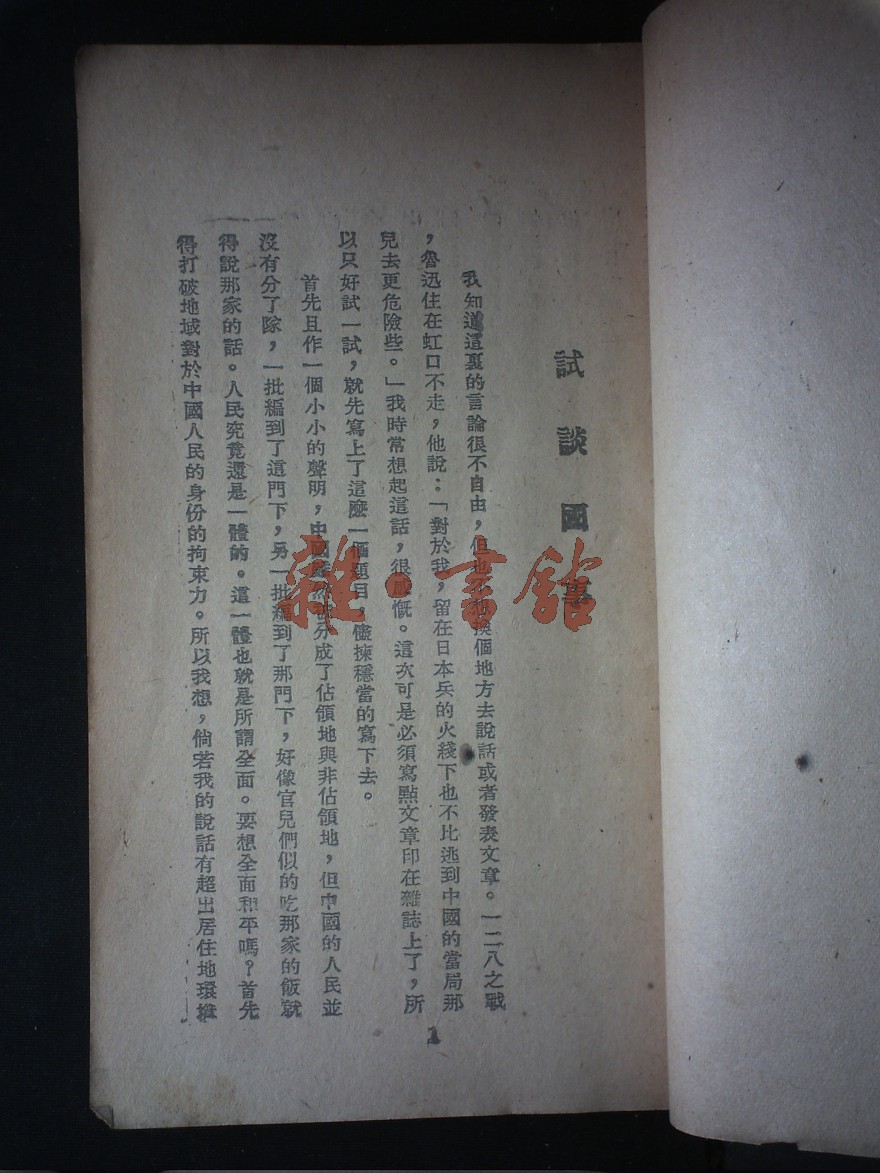 試談國事
我知道這裏的言論很不自由,但也不想換個地方去說話或者發表文章。一二八之戰
,魯迅住在虹口不走,他說:「對於我,留在日本兵的火綫下也不比逃到中國的當局那
兒去更危險些。」我時常想起這話,很感慨。這次可是必須寫點文章印在雜誌上了,所
以只好試一試,就先寫上了這麽一個題目,儘揀穩當的寫下去。
首先且作一個小小的聲明,中國雖然被分成了佔領地與非佔領地,但中國的人民並
沒有分了隊,一批編到了這門下,另一批編到了那門下,好像官兒們似的吃那家的飯就
得說那家的話。人民究竟還是一體的。這一體也就是所謂全面。要想全面和平嗎?首先
得打破地域對於中國人民的身份的拘束力。所以我想,倘若我的說話有超出居住地環境
1
雜·書館